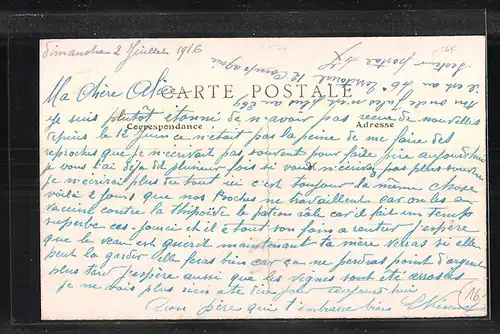 Dimanche 2 Juillet 1916
Ton oncle Jules n'est plus au 264
il est au 46e Territorial 1e Compagnie
Secteur postal
CARTE POSTALE
Correspondance
Adresse
Ma Chère Alice
je suis plutôt étonné de n'avoir pas recue de nouvelles
depuis le 12 Juin ce n'était pas la peine de me faire des
reproches que je n'ecrivait pas souvent pour faite pire aujourd'hui
je vous l'ai déja dit plusieur fois si vous n'écrivez pas plus souvent
je n'écrirai plus du tout ici c'est toujour la même chose
voilà 2 jours que nos Boches ne travaillent car on les a
vacciné contre la thipoïde le patron rale car il fait un temps
superbe ces jours ci et il a tout son foin a rentrer j'espère
que le veau est guérit maintenant ta mère verras si elle
peut la garder elle feras bien car on ne perdras point d'argent
plus tard j'espère aussi que les vignes sont été arrosées
je ne vois plus rien a te dire pour aujourd'hui
Ton père qui t'embrasse bien
16